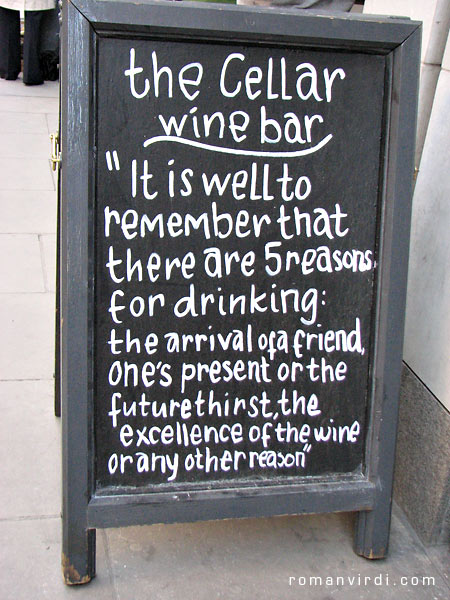 the Cellar
wine bar
"It is well to
remember that
there are 5 reasons
for drinking:
the arrival of a friend,
one's present or the
future thirst, the
excellence of the wine
or any other reason"
romanvirdi.com